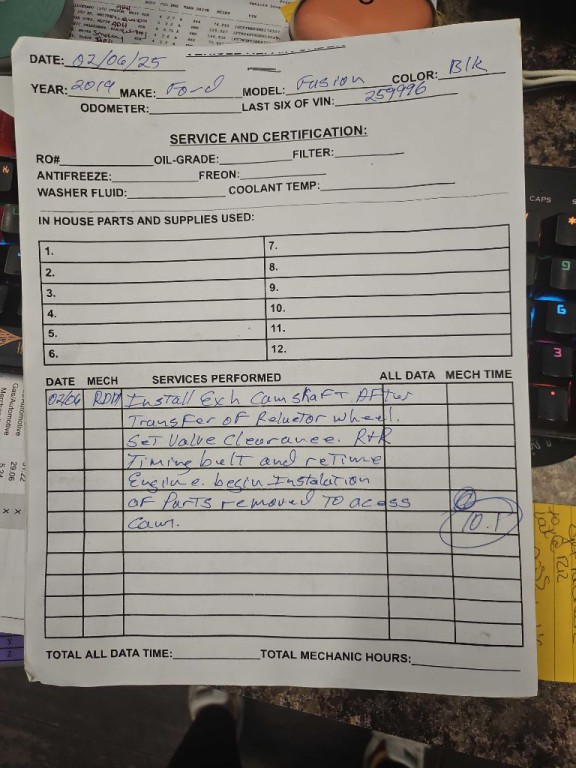 DATE: 02/06/25
YEAR: 2019 MAKE: Ford MODEL: Fusion COLOR: Blk
ODOMETER: LAST SIX OF VIN: 259996
SERVICE AND CERTIFICATION:
RO# OIL-GRADE: FILTER:
ANTIFREEZE: FREON:
WASHER FLUID: COOLANT TEMP:
IN HOUSE PARTS AND SUPPLIES USED:
1. 7.
2. 8.
3. 9.
4. 10.
5. 11.
6. 12.
DATE MECH SERVICES PERFORMED ALL DATA MECH TIME
02/06 RDH Install Exh Camshaft After
Transfer of Reluctor wheel.
Set Valve Clearance. R+R
Timing belt and retime
Engine. begin Instalation
of Parts removed To acess
Cam. 10.1
TOTAL ALL DATA TIME: TOTAL MECHANIC HOURS:
CAPS
9
G
3